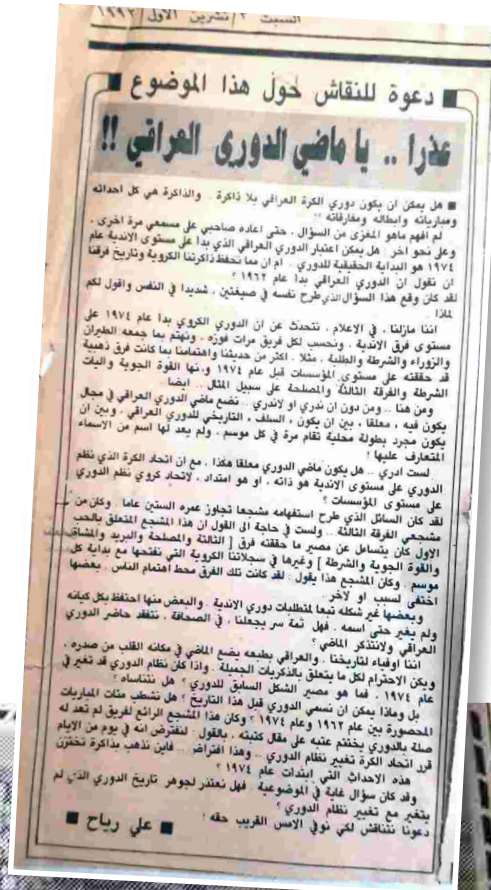 السبت ٣/ تشرين الاول /١٩٩٢
■ دعوة للنقاش حول هذا الموضوع ■
عذرا .. يا ماضي الدوري العراقي !!
■ هل يمكن ان يكون دوري الكرة العراقي بلا ذاكرة .. والذاكرة هي كل احداثه
ومبارياته وابطاله ومفارقاته ؟؟
لم افهم ماهو المغزى من السؤال ، حتى اعاده صاحبي على مسمعي مرة اخرى ،
وعلى نحو اخر : هل يمكن اعتبار الدوري العراقي الذي بدأ على مستوى الاندية عام
١٩٧٤ هو البداية الحقيقية للدوري .. ام ان مما تحفظ ذاكرتنا الكروية وتاريخ فرقنا
ان نقول ان الدوري العراقي بدأ عام ١٩٦٢ ؟
لقد كان وقع هذا السؤال الذي طرح نفسه في صيغتين ، شديدا في النفس واقول لكم
لماذا
اننا مازلنا ، في الاعلام ، نتحدث عن ان الدوري الكروي بدأ عام ١٩٧٤ على
مستوى فرق الاندية .. ونحسب لكل فريق مرات فوزه .. ونهتم بما جمعه الطيران
والزوراء والشرطة والطلبة ، مثلا ، اكثر من حديثنا واهتمامنا بما كانت فرق ذهبية
قد حققته على مستوى المؤسسات قبل عام ١٩٧٤ ومنها القوة الجوية واليات
الشرطة والفرقة الثالثة والمصلحة على سبيل المثال .. ايضا
ومن هنا .. ومن دون ان ندري او لاندري .. نضع ماضي الدوري العراقي في مجال
يكون فيه ، معلقا ، بين ان يكون ، السلف ، التاريخي للدوري العراقي ، وبين ان
يكون مجرد بطولة محلية تقام مرة في كل موسم ، ولم يعد لها اسم من الاسماء
المتعارف عليها !
لست ادري .. هل يكون ماضي الدوري معلقا هكذا ، مع ان اتحاد الكرة الذي نظم
الدوري على مستوى الاندية هو ذاته ، او هو امتداد ، لاتحاد كروي نظم الدوري
على مستوى المؤسسات ؟
لقد كان السائل الذي طرح استفهامه مشجعا تجاوز عمره الستين عاما .. وكان من
مشجعي الفرقة الثالثة .. ولست في حاجة الى القول ان هذا المشجع المتعلق بالحب
الاول كان يتساءل عن مصير ما حققته فرق [ الثالثة والمصلحة والبريد والمشاة
والقوة الجوية والشرطة ] وغيرها في سجلاتنا الكروية التي نفتحها مع بداية كل
موسم .. وكان المشجع هذا يقول : لقد كانت تلك الفرق محط اهتمام الناس .. بعضها
اختفى لسبب او لاخر
وبعضها غير شكله تبعا لمتطلبات دوري الاندية .. والبعض منها احتفظ بكل كيانه
ولم يغير حتى اسمه .. فهل ثمة سر يجعلنا ، في الصحافة ، نتفقد حاضر الدوري
العراقي ولانتذكر الماضي ؟
اننا اوفياء لتاريخنا .. والعراقي بطبعه يضع الماضي في مكانه القلب من صدره ،
ويكن الاحترام لكل ما يتعلق بالذكريات الجميلة .. واذا كان نظام الدوري قد تغير في
عام ١٩٧٤ ، فما هو مصير الشكل السابق للدوري ؟ هل نتناساه ؟
بل وماذا يمكن ان نسمي الدوري قبل هذا التاريخ ؟ هل نشطب مئات المباريات
المحصورة بين عام ١٩٦٢ وعام ١٩٧٤ ؟ وكان هذا المشجع الرائع لفريق لم تعد له
صلة بالدوري يختتم عتبه على مقال كتبته ، بالقول : لنفترض انه في يوم من الايام
قرر اتحاد الكرة تغيير نظام الدوري .. وهذا افتراض .. فاين نذهب بذاكرة تختزن
هذه الاحداث التي ابتدات عام ١٩٧٤ ؟
وقد كان سؤال غاية في الموضوعية .. فهل نعتذر لجوهر تاريخ الدوري الذي لم
يتغير مع تغيير نظام الدوري ؟
دعونا نتناقش لكي نوفي الامس القريب حقه !
■ علي رياح ■